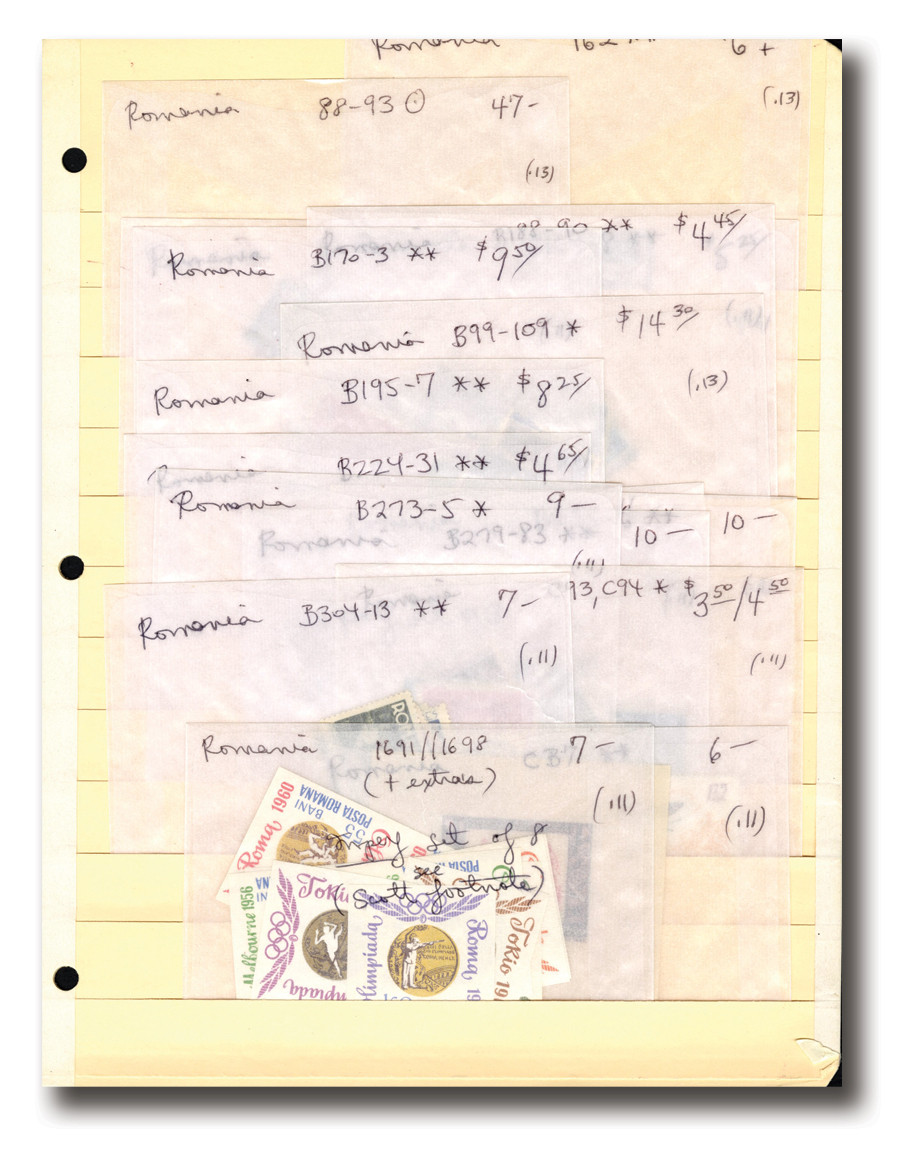 Romania 162 ** 6+
(.13)
Romania 88-93 ⊙ 47-
(.13)
B188-90 ** $4 45/
Romania B170-3 ** $9 50/
Romania B99-109 * $14 30/
(.13)
Romania B195-7 ** $8 25/
Romania B224-31 ** $4 65/
Romania B273-5 * 9-
10- 10-
Romania B279-83 **
(.11)
93, C94 * $3 50/4 50
Romania B304-13 ** 7-
(.11) (.11)
Romania 1691//1698 7- 6-
(+ extras)
Romania CB
(.11) (.11)
imperf set of 8
see
(Scott footnote)
Roma 1960
55 BANI
POSTA ROMANA
Melbourne 1956
Tokio
Roma
Tokio